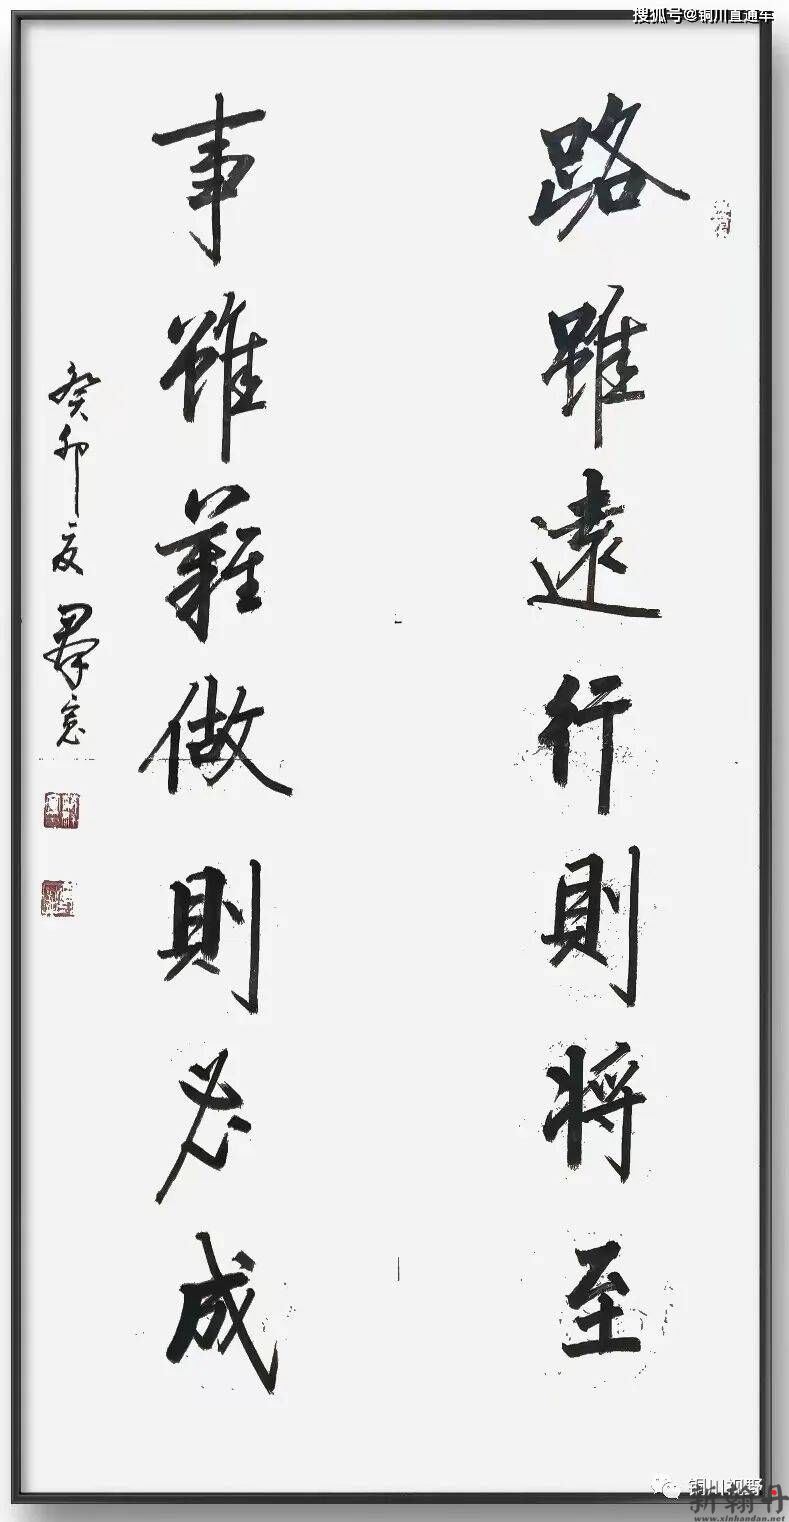 搜狐号@铜川直通车
路雖遠行則将至
事雖難做則必成
癸卯夏
铜川视野
新翰丹
www.xinhandan.net